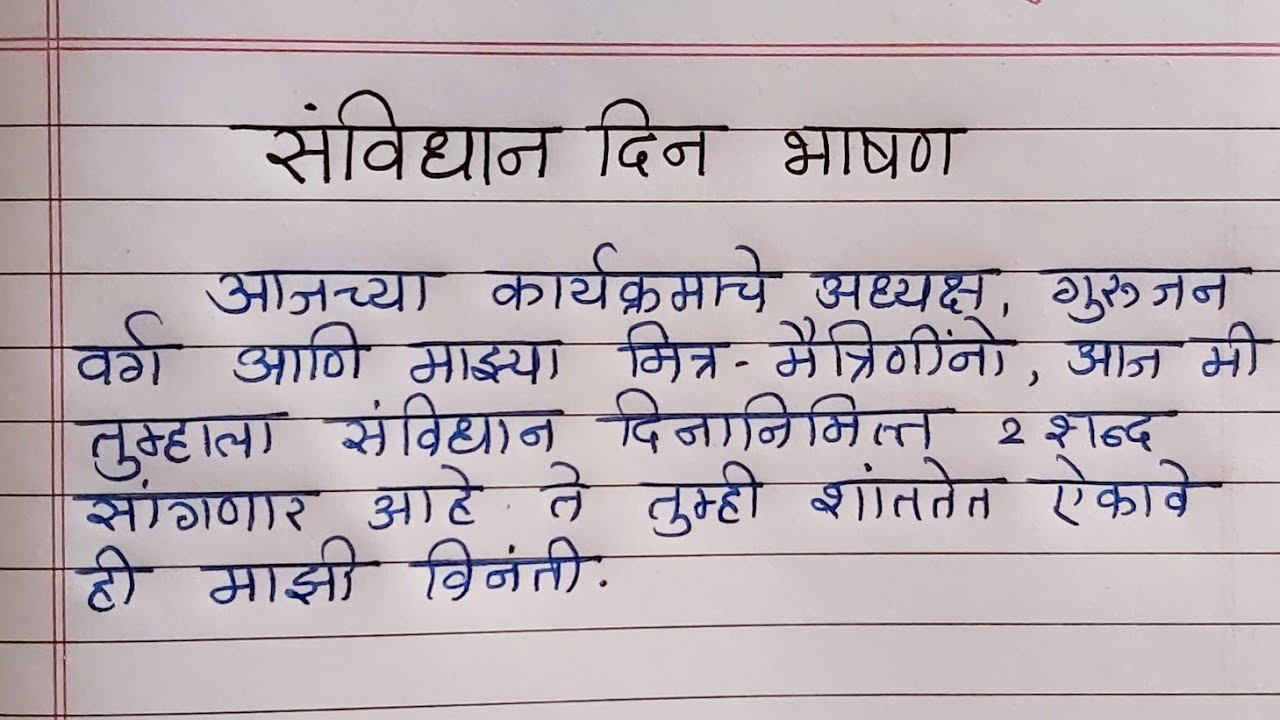 संविधान दिन भाषण
आजच्या कार्यक्रमाचे अध्यक्ष, गुरुजन
वर्ग आणि माझ्या मित्र-मैत्रिणींनो, आज मी
तुम्हाला संविधान दिनानिमित्त २ शब्द
सांगणार आहे. ते तुम्ही शांततेत ऐकावे
ही माझी विनंती.